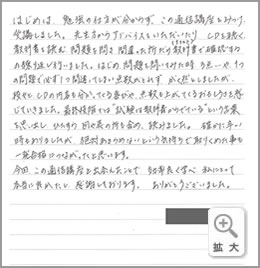 はじめは、勉強の仕方が分からず、この通信講座をみつけ、
受講しました。先生方からアドバイスをいただいたり、CDを聴く、
教科書を読む、問題を解き間違った所だけ教科書で確認する
の勉強法を行いました。はじめ、問題を解いてみた時
の問題で必ず1つ間違ってしまい点数がとれず がく然としましたが、
段々とCDの内容も分かってくる事が、点数も上がってくるおもしろさも感
じていきました。最終段階では"試験は教科書からでている"という言葉
を思い出し、ひたすら 図や表の所も含め、読みました。確かに辛い
時もありましたが 絶対あきらめないという気持ちで取りくめた事も
一発合格につながったと思います。
今回 この通信講座と出会えたことで 効率良く学べ 私にとって
本当に良かったと 感謝しております。ありがとうございました。
拡大